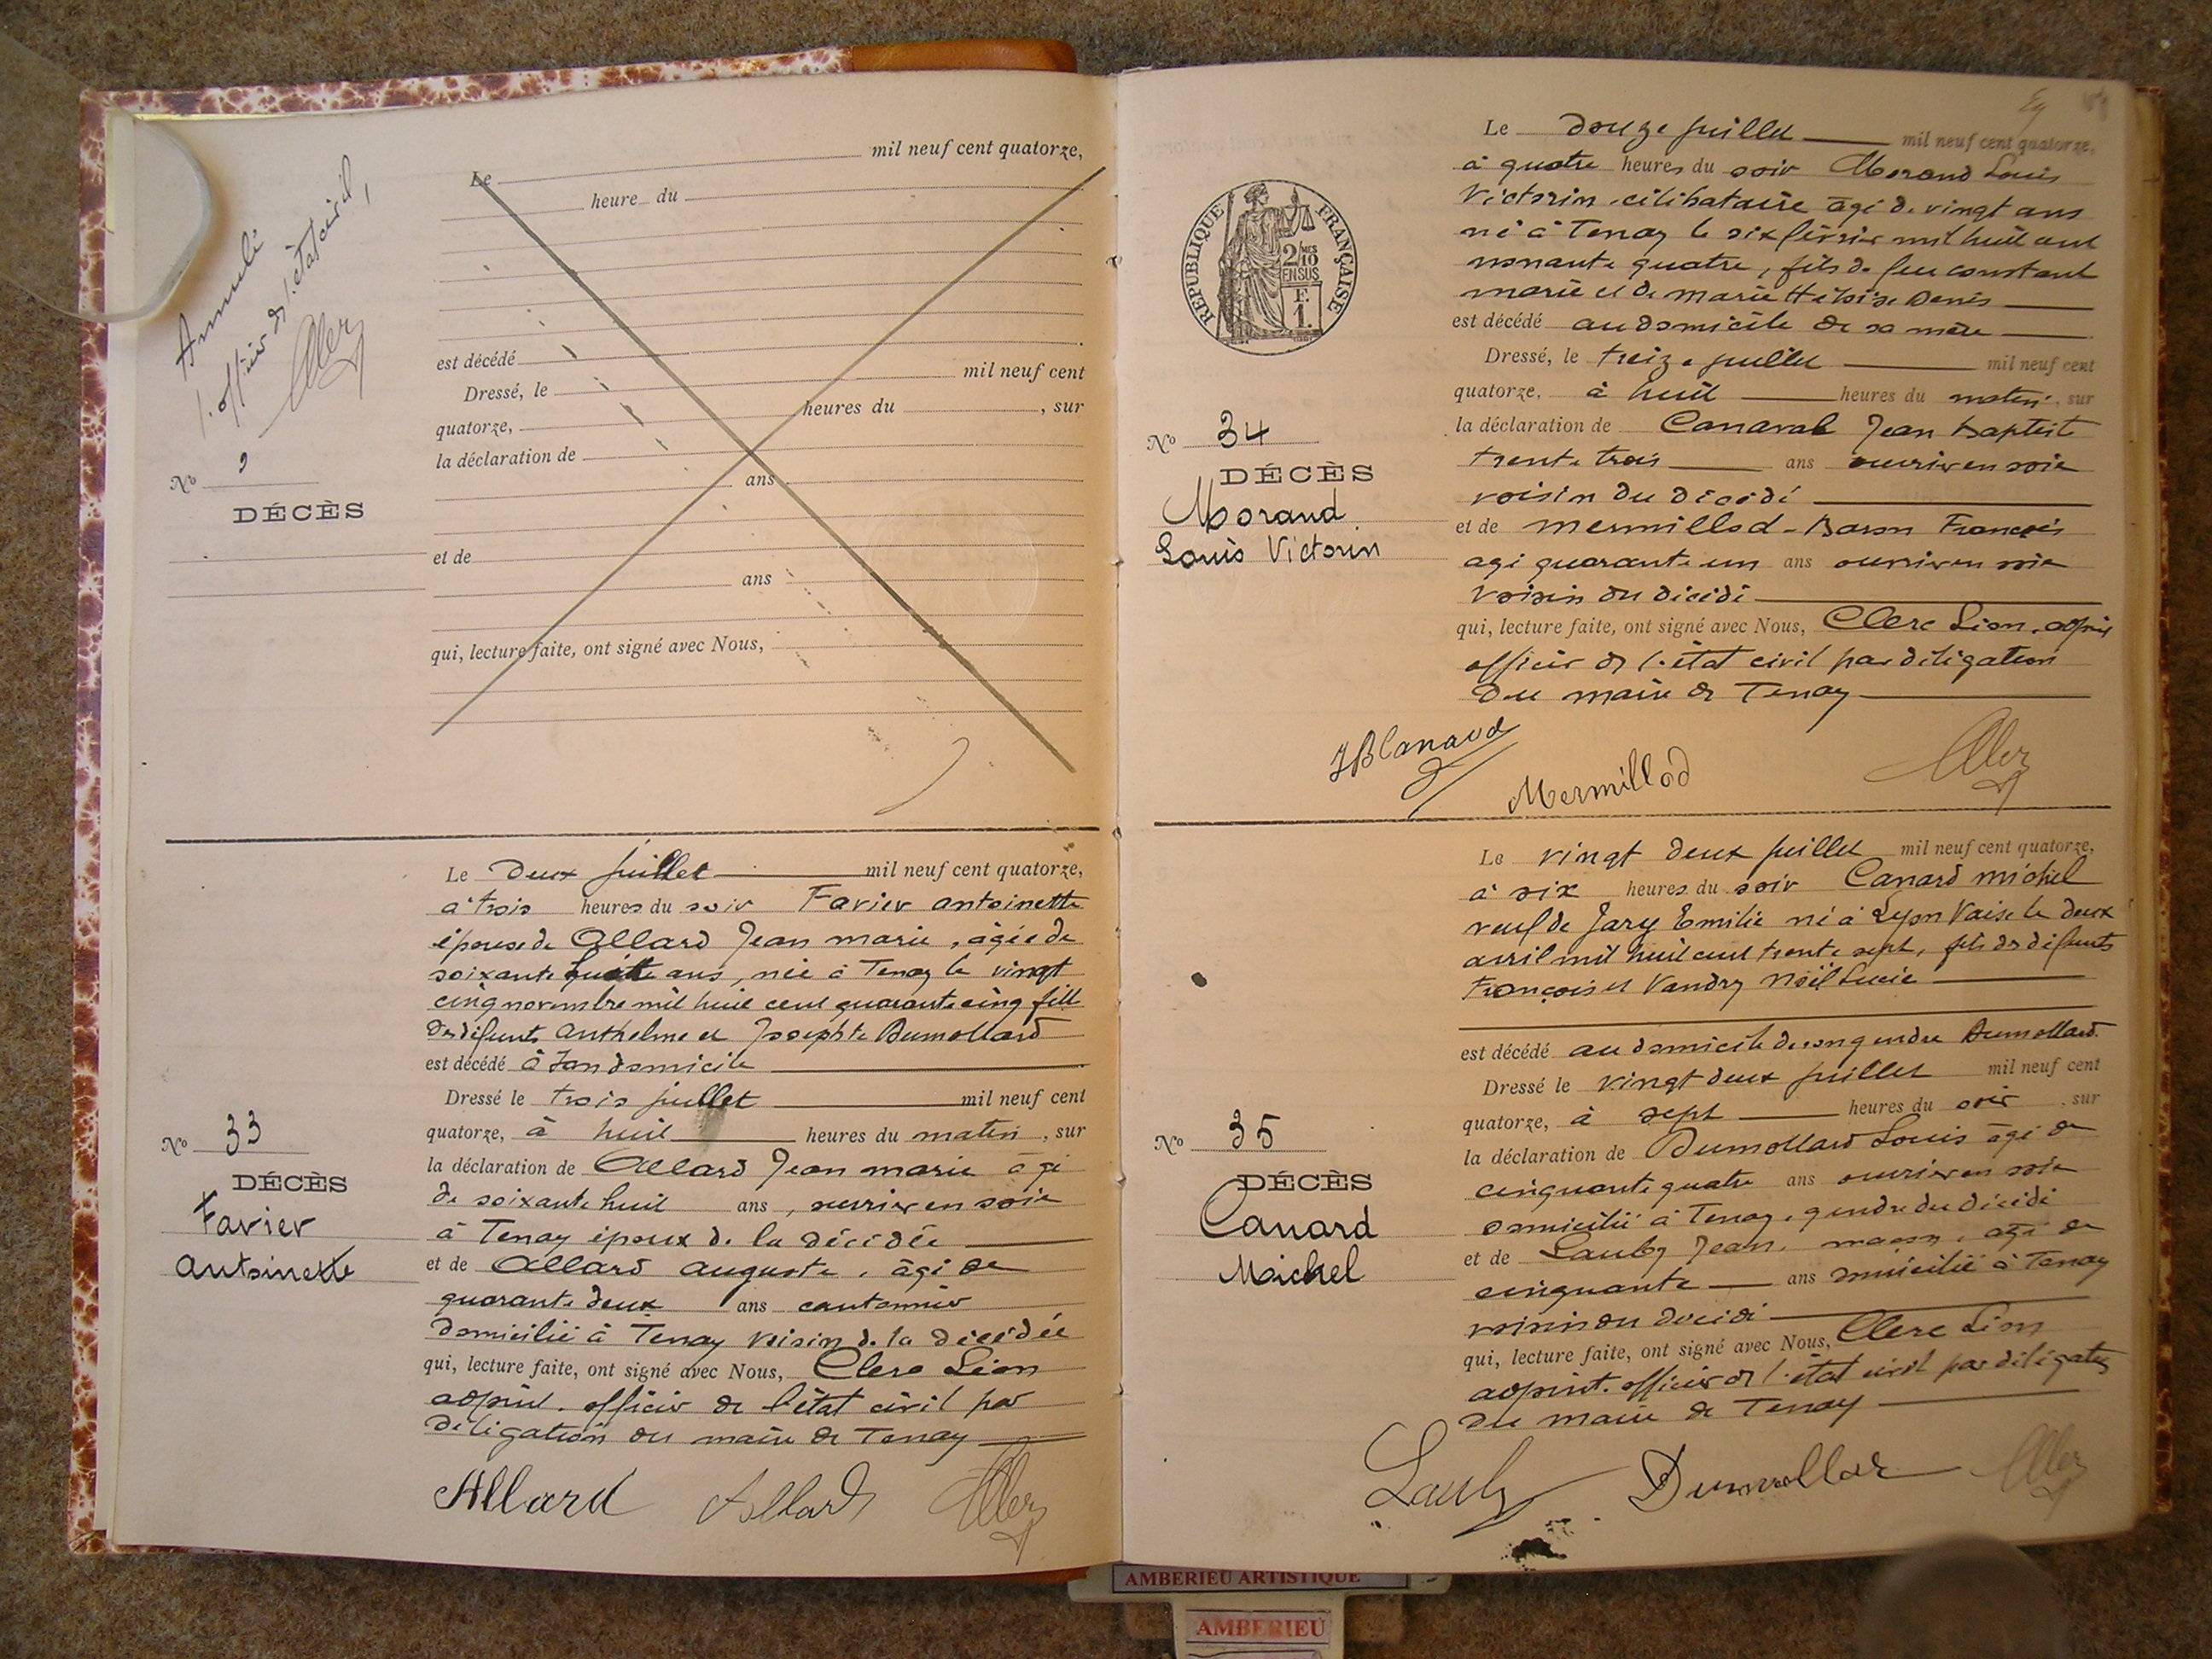 Annulé
l'officier de l'état civil,
Clerc
Le mil neuf cent quatorze,
heure du
est décédé
Dressé, le mil neuf cent
quatorze, heures du , sur
la déclaration de
ans
et de
ans
qui, lecture faite, ont signé avec Nous,
No
DÉCÈS
No 33
DÉCÈS
Favier
Antoinette
Le Deux juillet mil neuf cent quatorze,
à trois heures du soir Favier antoinette
épouse de Allard Jean marie, âgée de
soixante huit ans, née à Tenay le vingt
cinq novembre mil huit cent quarante cinq fille
des défunts Anthelme et Josephte Dumollard
est décédé à son domicile
Dressé le trois juillet mil neuf cent
quatorze, à huit heures du matin, sur
la déclaration de Allard Jean marie âgé
de soixante huit ans, ouvrier en soie
à Tenay époux de la décédée
et de Allard auguste, âgé de
quarante deux ans cantonnier
domicilié à Tenay voisin de la décédée
qui, lecture faite, ont signé avec Nous, Clerc Léon
adjoint. officier de l'état civil par
délégation du maire de Tenay
Allard Allard Clerc
RÉPUBLIQUE FRANÇAISE
2/10 MES
EN SUS
F.
1.
No 34
DÉCÈS
Morand
Louis Victorin
Le douze juillet mil neuf cent quatorze,
à quatre heures du soir Morand Louis
Victorin célibataire âgé de vingt ans
né à Tenay le six février mil huit cent
nonante quatre, fils de feu constant
marie et de marie Héloïse Denis
est décédé au domicile de sa mère
Dressé, le treize juillet mil neuf cent
quatorze, à huit heures du matin, sur
la déclaration de Canavad Jean Baptiste
trente trois ans ouvrier en soie
voisin du décédé
et de Mermillod-Baron François
agé quarante un ans ouvrier en soie
voisin du décédé
qui, lecture faite, ont signé avec Nous, Clerc Léon, adjoint
officier de l'état civil par délégation
du maire de Tenay
JB Canavad
Mermillod
Clerc
No 35
DÉCÈS
Canard
Michel
Le vingt deux juillet mil neuf cent quatorze,
à six heures du soir Canard michel
veuf de Jary Emilie né à Lyon Vaise le deux
avril mil huit cent trente sept, fils des défunts
François et Vandry Noël Lucie
est décédé au domicile de son gendre Dumollard
Dressé le vingt deux juillet mil neuf cent
quatorze, à sept heures du soir, sur
la déclaration de Dumollard Louis âgé de
cinquante quatre ans ouvrier en soie
domicilié à Tenay, gendre du décédé
et de Lauby Jean, maçon, agé de
cinquante ans domicilié à Tenay
voisin du décédé
qui, lecture faite, ont signé avec Nous, Clerc Léon
adjoint. officier de l'état civil par délégation
du maire de Tenay
Lauby Dumollard Clerc
AMBERIEU ARTISTIQUE
AMBERIEU